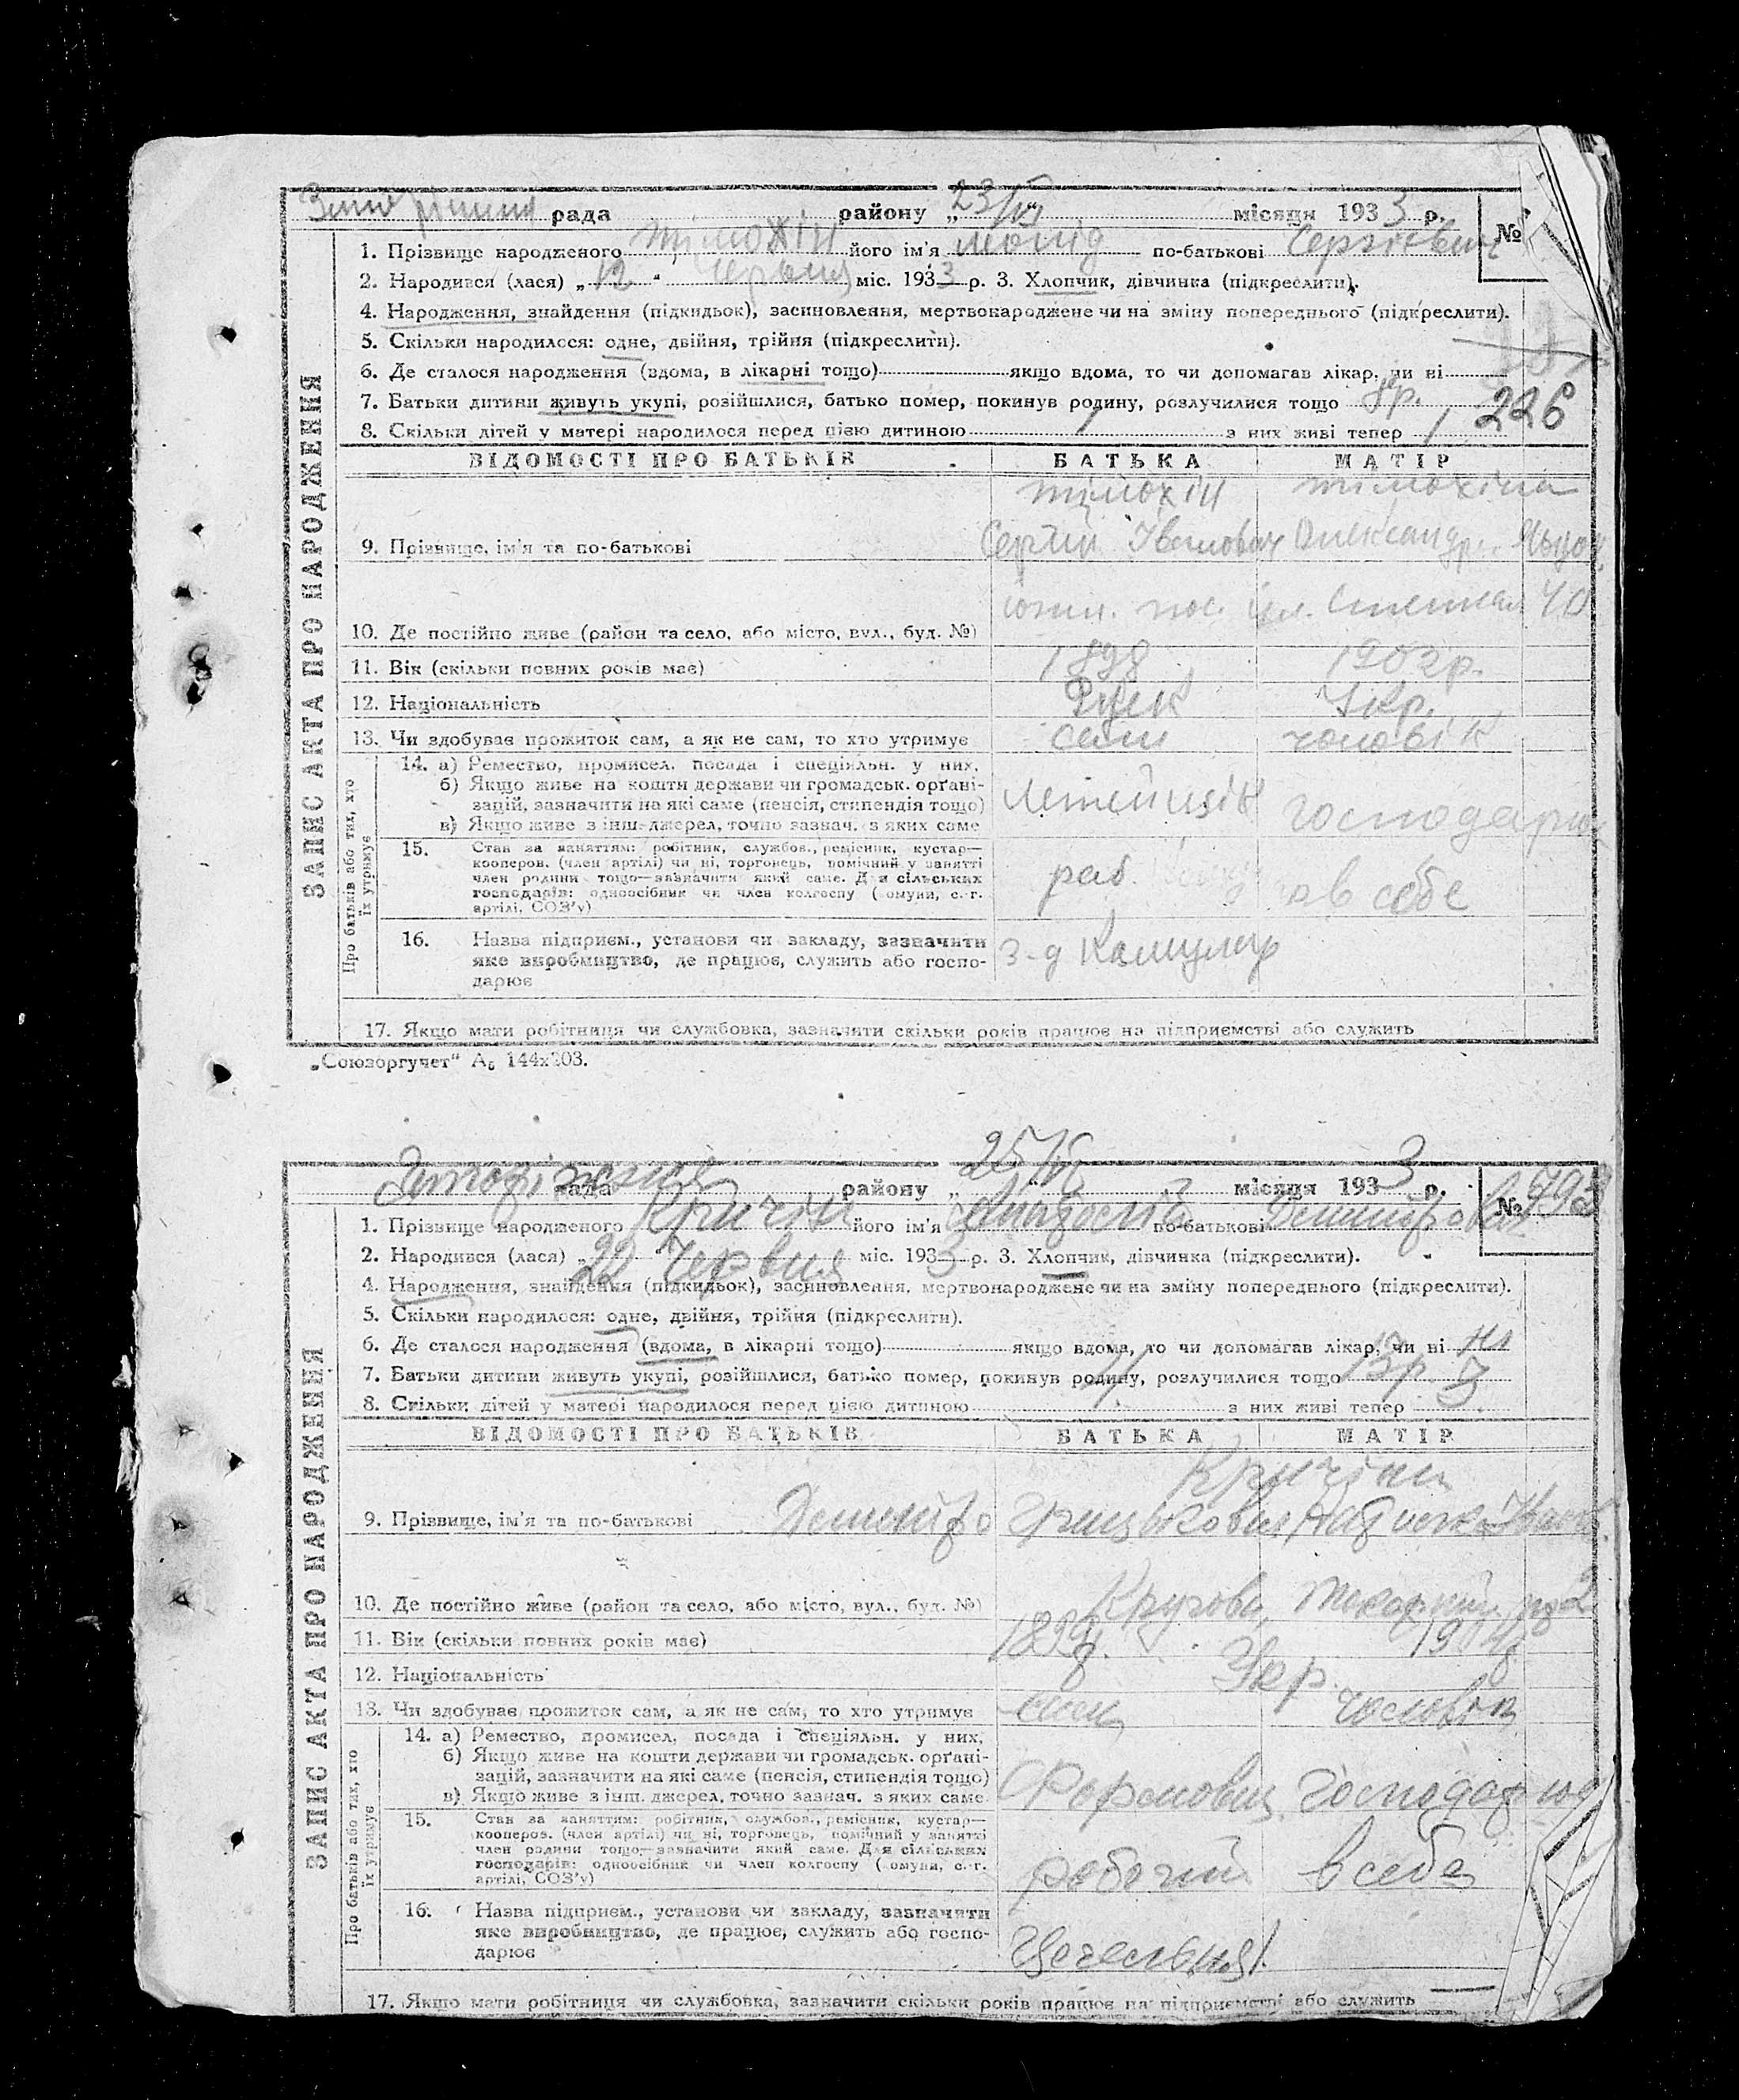 рада району „23/VI місяця 1933 р. №
1. Прізвище народженого Тімохін його ім'я Леонід по-батькові Сергієвич
2. Народився (лася) „12" червня міс. 1933 р. 3. Хлопчик, дівчинка (підкреслити).
4. Народження, знайдення (підкидьок), засиновлення, мертвонароджене чи на зміну попереднього (підкреслити).
5. Скільки народилося: одне, двійня, трійня (підкреслити).
6. Де сталося народження (вдома, в лікарні тощо) якщо вдома, то чи допомагав лікар, чи ні
7. Батьки дитини живуть укупі, розійшлися, батько помер, покинув родину, розлучилися тощо
8. Скільки дітей у матері народилося перед цією дитиною 1 з них живі тепер 1 226
ЗАПИС АКТА ПРО НАРОДЖЕННЯ
ВІДОМОСТІ ПРО БАТЬКІВ БАТЬКА МАТІР
Тімохін Тімохіна
9. Прізвище, ім'я та по-батькові Сергій Іванович Олександр.
10. Де постійно живе (район та село, або місто, вул., буд. №) пос. ул. Степная 40
11. Вік (скільки повних років має) 1898 1902 р.
12. Національність Укр.
13. Чи здобуває прожиток сам, а як не сам, то хто утримує сам чоловік
Про батьків або тих, хто їх утримує
14. а) Ремество, промисел, посада і спеціяльн. у них.
б) Якщо живе на кошти держави чи громадськ. орґані-
зацій, зазначити на які саме (пенсія, стипендія тощо) господарка
в) Якщо живе з інш. джерел, точно зазнач. з яких саме
15. Стан за заняттям: робітник, службов., ремісник, кустар—
кооперов. (член артілі) чи ні, торговець, помічний у занятті
член родини тощо—зазначити який саме. Для сільських раб. в себе
господарів: одноосібник чи член колгоспу (комуни, с.-г.
артілі, СОЗ'у)
16. Назва підприєм., установи чи закладу, зазначити з-д
яке виробництво, де працює, служить або госпо-
дарює
17. Якщо мати робітниця чи службовка, зазначити скільки років працює на підприємстві або служить
„Союзоргучет" А₆ 144х203.
рада району „25/VI місяця 1933 р. № 793
1. Прізвище народженого Кричін його ім'я по-батькові
2. Народився (лася) „22 Червня міс. 1933 р. 3. Хлопчик, дівчинка (підкреслити).
4. Народження, знайдення (підкидьок), засиновлення, мертвонароджене чи на зміну попереднього (підкреслити).
5. Скільки народилося: одне, двійня, трійня (підкреслити).
6. Де сталося народження (вдома, в лікарні тощо) якщо вдома, то чи допомагав лікар, чи ні ні
7. Батьки дитини живуть укупі, розійшлися, батько помер, покинув родину, розлучилися тощо 13 р.
8. Скільки дітей у матері народилося перед цією дитиною з них живі тепер 3.
ЗАПИС АКТА ПРО НАРОДЖЕННЯ
ВІДОМОСТІ ПРО БАТЬКІВ БАТЬКА МАТІР
Кричіни
9. Прізвище, ім'я та по-батькові
10. Де постійно живе (район та село, або місто, вул., буд. №)
11. Вік (скільки повних років має) 1898 1904
12. Національність Укр.
13. Чи здобуває прожиток сам, а як не сам, то хто утримує сам чоловік
Про батьків або тих, хто їх утримує
14. а) Ремество, промисел, посада і спеціяльн. у них.
б) Якщо живе на кошти держави чи громадськ. орґані-
зацій, зазначити на які саме (пенсія, стипендія тощо)
в) Якщо живе з інш. джерел, точно зазнач. з яких саме
15. Стан за заняттям: робітник, службов., ремісник, кустар—
кооперов. (член артілі) чи ні, торговець, помічний у занятті
член родини тощо—зазначити який саме. Для сільських робочий в себе
господарів: одноосібник чи член колгоспу (комуни, с.-г.
артілі, СОЗ'у)
16. Назва підприєм., установи чи закладу, зазначити
яке виробництво, де працює, служить або госпо-
дарює
17. Якщо мати робітниця чи службовка, зазначити скільки років працює на підприємстві або служить